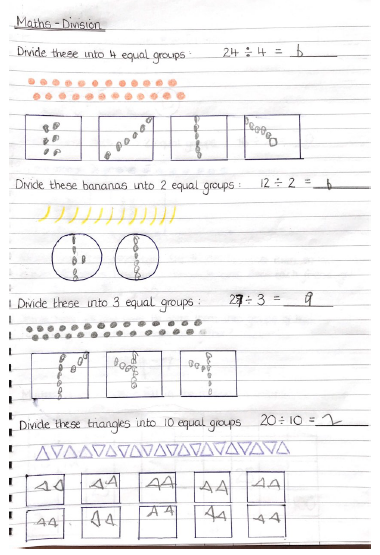 Maths - Division
Divide these into 4 equal groups: 24 ÷ 4 = 6
Divide these bananas into 2 equal groups: 12 ÷ 2 = 6
Divide these into 3 equal groups: 27 ÷ 3 = 9
Divide these triangles into 10 equal groups 20 ÷ 10 = 2